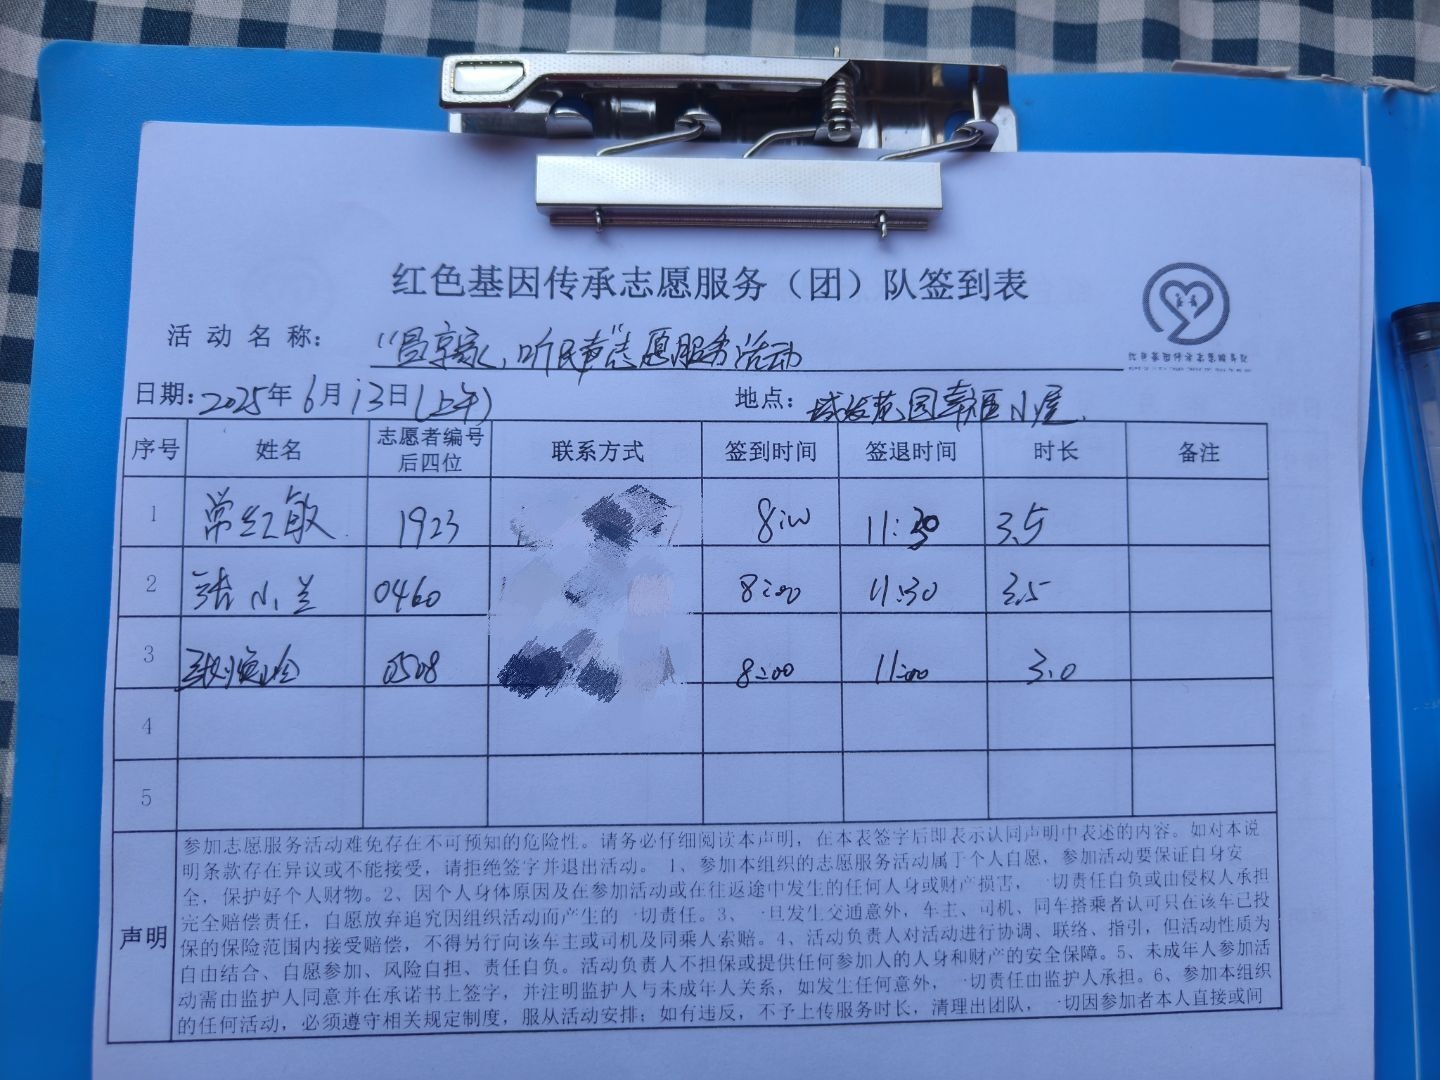 红色基因传承志愿服务（团）队签到表
活动名称：志愿服务活动
日期：2025年6月13日(上午)
地点：小屋
序号 姓名 志愿者编号后四位 联系方式 签到时间 签退时间 时长 备注
1 常红敏 1923 8:00 11:30 3.5
2 张小兰 0460 8:00 11:30 3.5
3 0508 8:00 11:00 3.0
4
5
声明
参加志愿服务活动难免存在不可预知的危险性。请务必仔细阅读本声明，在本表签字后即表示认同声明中表述的内容。如对本说
明条款存在异议或不能接受，请拒绝签字并退出活动。1、参加本组织的志愿服务活动属于个人自愿，参加活动要保证自身安
全，保护好个人财物。2、因个人身体原因及在参加活动或在往返途中发生的任何人身或财产损害，一切责任自负或由侵权人承担
完全赔偿责任，自愿放弃追究因组织活动而产生的一切责任。3、一旦发生交通意外，车主、司机、同车搭乘者认可只在该车已投
保的保险范围内接受赔偿，不得另行向该车主或司机及同乘人索赔。4、活动负责人对活动进行协调、联络、指引，但活动性质为
自由结合、自愿参加、风险自担、责任自负。活动负责人不担保或提供任何参加人的人身和财产的安全保障。5、未成年人参加活
动需由监护人同意并在承诺书上签字，并注明监护人与未成年人关系，如发生任何意外，一切责任由监护人承担。6、参加本组织
的任何活动，必须遵守相关规定制度，服从活动安排；如有违反，不予上传服务时长，清理出团队，一切因参加者本人直接或间